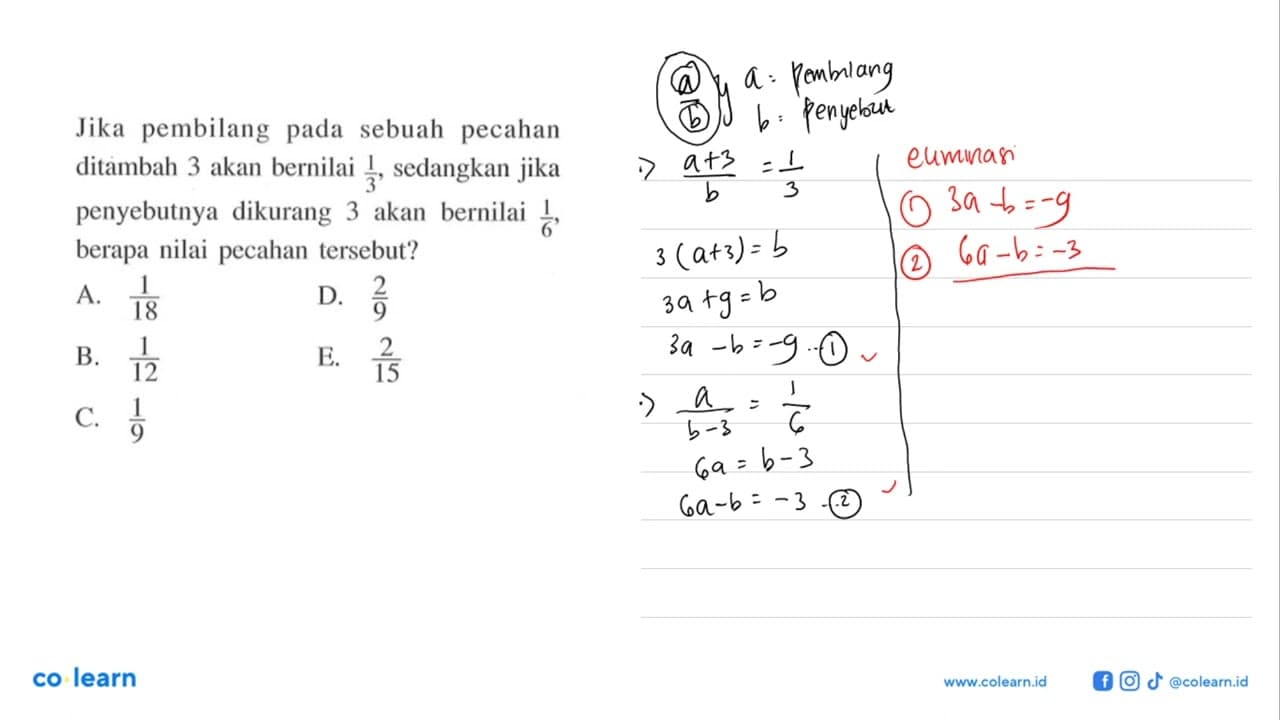 Jika pembilang pada sebuah pecahan
ditambah 3 akan bernilai 1/3, sedangkan jika
penyebutnya dikurang 3 akan bernilai 1/6,
berapa nilai pecahan tersebut?
A. 1/18 D. 2/9
B. 1/12 E. 2/15
C. 1/9
a/b } a = pembilang
b = penyebut
:) (a+3)/b = 1/3
3(a+3) = b
3a + 9 = b
3a - b = -9 ...①
:) a/(b-3) = 1/6
6a = b - 3
6a - b = -3 ...②
eliminasi
① 3a - b = -9
② 6a - b = -3
co learn
www.colearn.id
@colearn.id